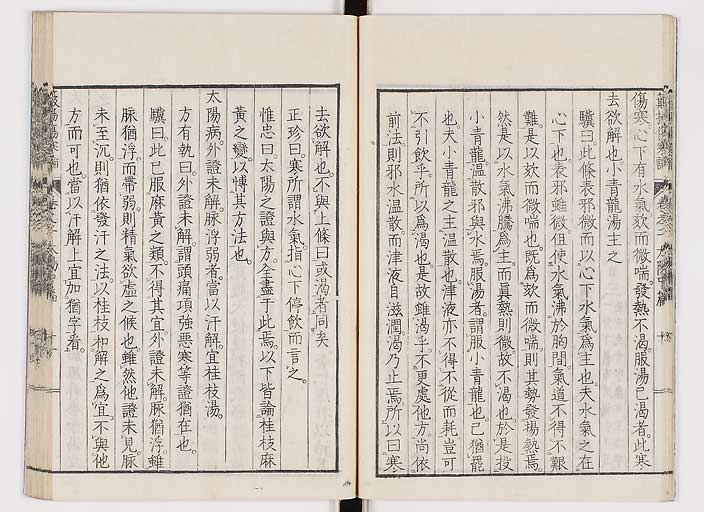 傷寒心下有水氣欬而微喘。發熱不渴。服湯已渴者。此寒
去欲解也。小青龍湯主之
驥曰。此條表邪微而以心下水氣爲主也。夫水氣之在
心下也。表邪雖微。但使水氣沸於胸間。氣道不得不艱
難。是以欬而微喘也。既爲欬而微喘。則其勢發揚熱焉。
然是以水氣沸騰爲主。而眞熱則微。故不渴也。於是投
小青龍。温散邪與水焉。服湯者。謂服小青龍也。已猶罷
也。夫小青龍之主温散也。津液亦不得不從而耗。豈可
不引飲乎。所以爲渴也。是故雖渴乎。不更處他方。尚依
前法。則邪水温散。而津液自滋潤。渴乃止焉。所以曰寒
去欲解也。不與上條曰或渴者同矣
正珍曰。寒所謂水氣。指心下停飲而言之。
惟忠曰。太陽之證與方。全盡于此焉。以下皆論桂枝麻
黄之變。以博其方法也。
太陽病。外證未解。脉浮弱者。當以汗解。宜桂枝湯。
方有執曰。外證未解。謂頭痛項強惡寒等證猶在也。
驥曰。此已服麻黄之類。不得其宜。外證未解。脉猶浮。雖
脉猶浮。而帶弱。則精氣欲虛之候也。雖然他證未見。脉
未至沉。則猶依發汗之法。以桂枝和解之爲宜。不與他
方而可也。當以汗解上。宜加猶字看。